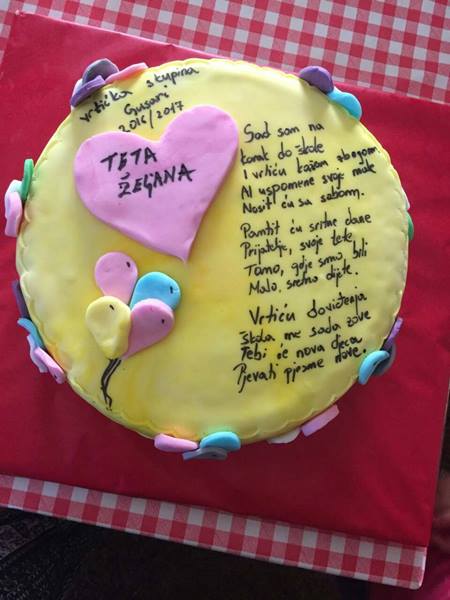 vrtićka skupina
Gusari
2016/2017
TETA
ŽELJANA
Sad sam na
korak do škole
I vrtiću kažem zbogom
Al uspomene svoje male
Nosit ću sa sobom.
Pamtit ću sretne dane
Prijatelje, svoje tete
Tamo, gdje smo, bili
Malo, sretno dijete.
Vrtiću doviđenja
škola me sada zove
Tebi će nova djeca
Pjevati pjesme nove.